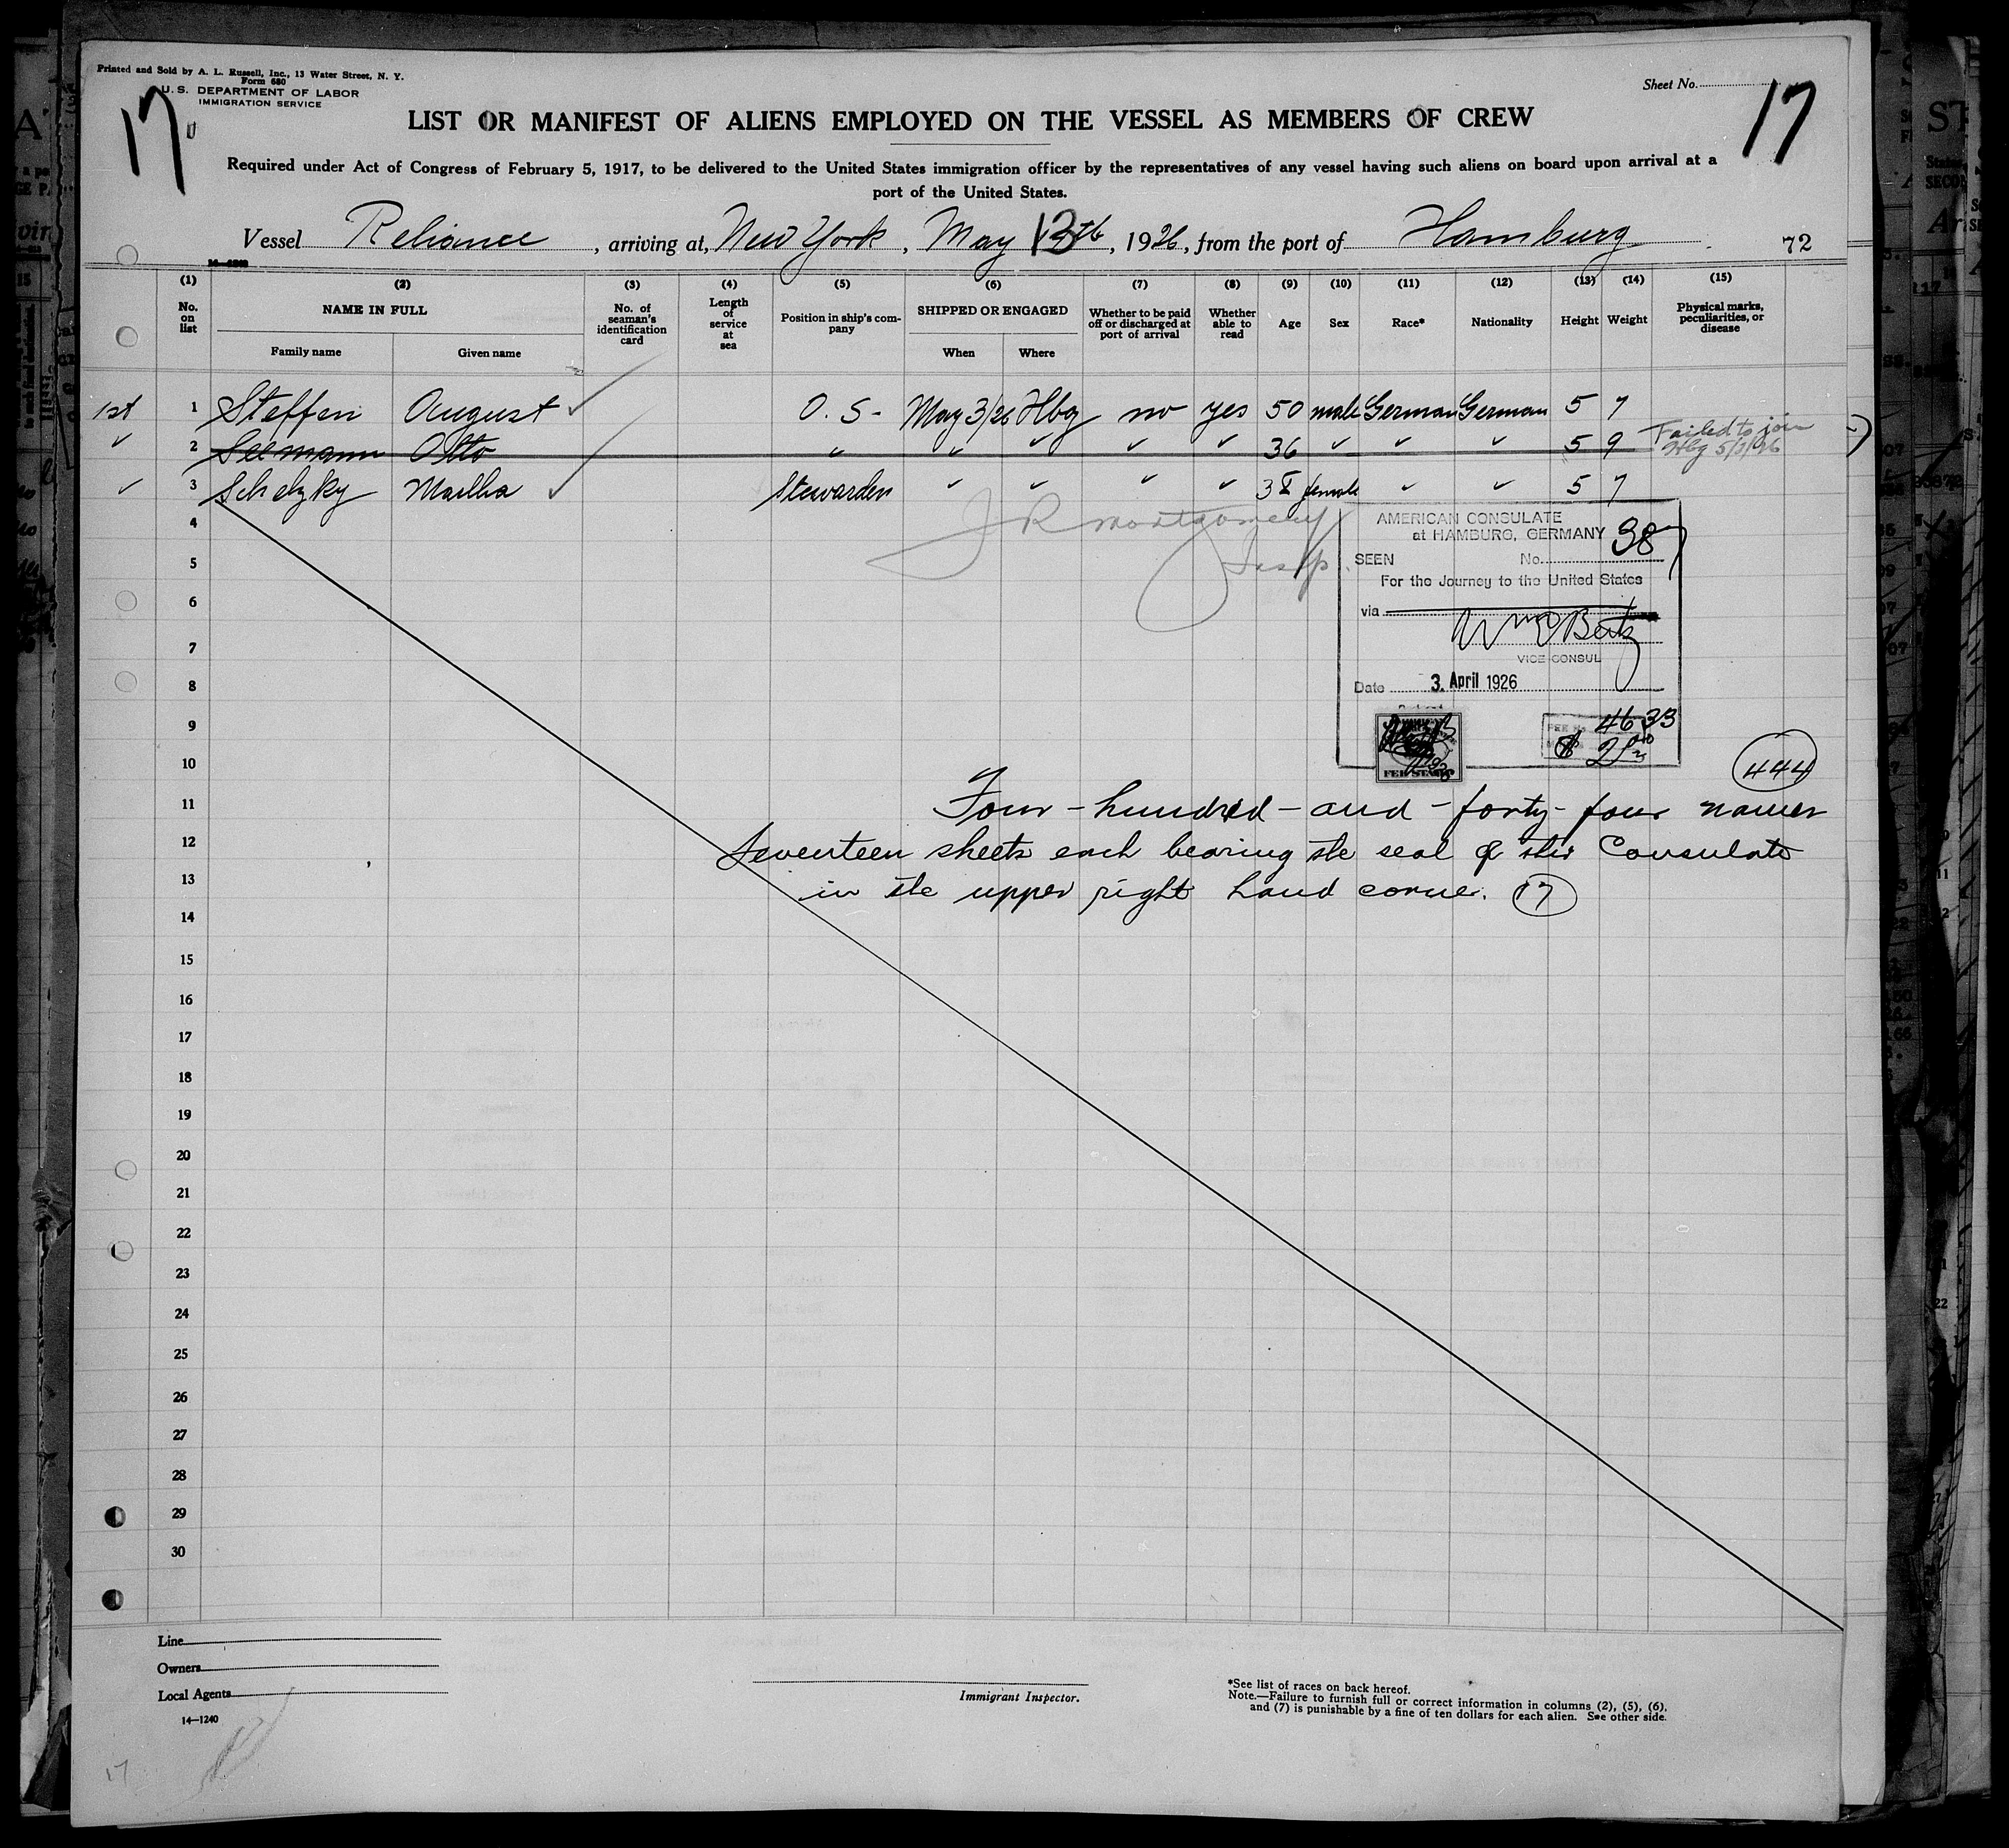 Printed and Sold by A. L. Russell, Inc., 13 Water Street, N. Y.
Form 680
U. S. DEPARTMENT OF LABOR
IMMIGRATION SERVICE
Sheet No.
17 17
LIST OR MANIFEST OF ALIENS EMPLOYED ON THE VESSEL AS MEMBERS OF CREW
Required under Act of Congress of February 5, 1917, to be delivered to the United States immigration officer by the representatives of any vessel having such aliens on board upon arrival at a
port of the United States.
Vessel Reliance, arriving at, New York, May 13th, 1926, from the port of Hamburg 72
(1) (2) (3) (4) (5) (6) (7) (8) (9) (10) (11) (12) (13) (14) (15)
No. on list NAME IN FULL Family name Given name No. of seaman's identification card Length of service at sea Position in ship's company SHIPPED OR ENGAGED When Where Whether to be paid off or discharged at port of arrival Whether able to read Age Sex Race* Nationality Height Weight Physical marks, peculiarities, or disease
1st 1 Steffen August O. S. May 3/26 Hbg no yes 50 male German German 5 7
2 Seemann Otto 36 5 9 Failed to join
Hbg 5/3/26
3 Schelzky Martha Stewardess female 5 7
J R Montgomery
Insp.
4
5
6
7
8
9
10
11
12
13
14
15
16
17
18
19
20
21
22
23
24
25
26
27
28
29
30
AMERICAN CONSULATE
at HAMBURG, GERMANY
SEEN No. 38
For the Journey to the United States
via
VICE CONSUL
Date 3. April 1926
FEE No. 4633
FEE STAMP
444
Four-hundred-and-forty-four names
Seventeen sheets each bearing the seal of this Consulate
in the upper right hand corner. 17
Line
Owners
Local Agents
14—1240
Immigrant Inspector.
*See list of races on back hereof.
Note.—Failure to furnish full or correct information in columns (2), (5), (6),
and (7) is punishable by a fine of ten dollars for each alien. See other side.
17